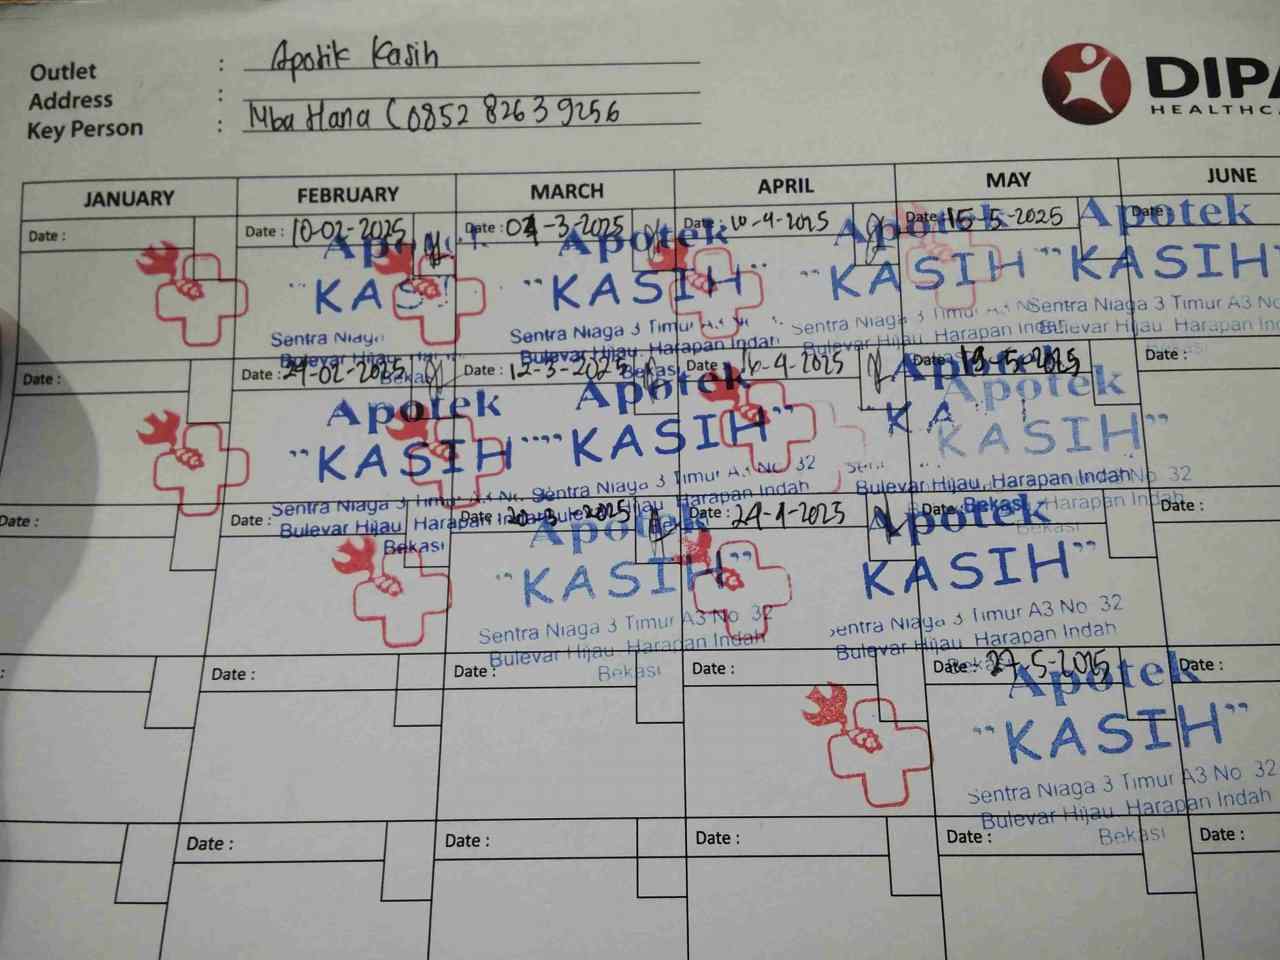 Outlet : Apotik Kasih
Address :
Key Person : Mba Hana (0852 8263 9256
DIPA
HEALTHCA
JANUARY FEBRUARY MARCH APRIL MAY JUNE
Date : Date : 10-02-2025 Date : 04-3-2025 Date : 10-4-2025 Date : 15-5-2025 Date :
Apotek Apotek Apotek
"KAS "KASIH "KASIH "KASIH"
Sentra Niaga 3 Timur Sentra Niaga 3 Timur Sentra Niaga 3 Timur A3 No
Bulevar Hijau Bulevar Hijau, Harapan Indah Bulevar Hijau, Harapan Indah
Bekasi Bekasi
Date : Date : 24-02-2025 Date : 12-3-2025 Date : 16-4-2025 Date : 19-5-2025 Date :
Apotek Apotek Apotek Apotek
"KASIH" "KASIH" "KA KASIH"
Sentra Niaga 3 Timur Sentra Niaga 3 Timur A3 No 32 No 32
Bulevar Hijau, Harapan Indah Bulevar Hijau, Harapan Indah Bulevar Hijau, Harapan Indah Harapan Indah
Bekasi Bekasi
Date : Date : Date : 20-3-2025 Date : 24-4-2025 Date : Date :
Apotek Apotek
"KASIH" KASIH"
Sentra Niaga 3 Timur A3 No 32 Sentra Niaga 3 Timur A3 No 32
Bulevar Hijau, Harapan Indah Bulevar Hijau, Harapan Indah
Bekasi
Date : Date : Date : Date : 27-5-2025 Date :
Apotek
"KASIH"
Sentra Niaga 3 Timur A3 No 32
Bulevar Hijau, Harapan Indah
Bekasi
Date : Date : Date : Date : Date :